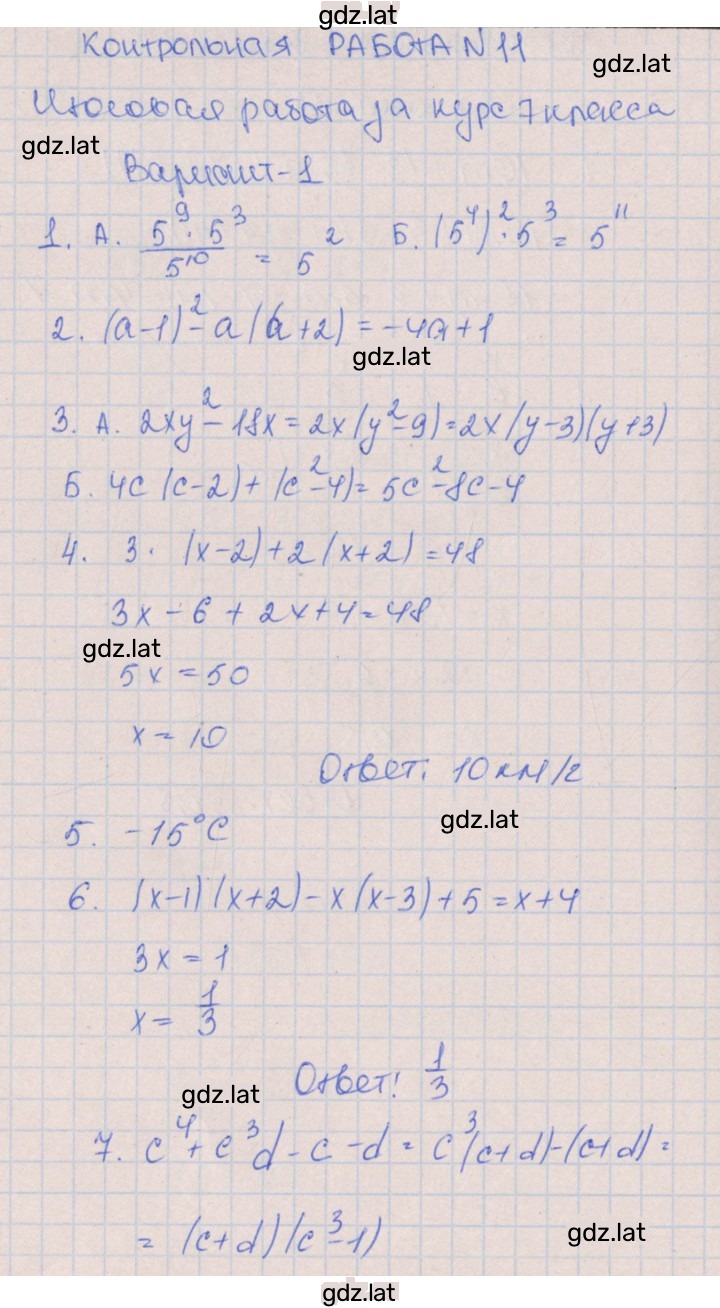 gdz.lat
Контрольная РАБОТА N 11
gdz.lat
Итоговая работа за курс 7 класса
gdz.lat
Вариант-1
1. А. (5⁹ · 5³)/5¹⁰ = 5² Б. (5⁴)² · 5³ = 5¹¹
2. (a-1)² - a(a+2) = -4a+1
gdz.lat
3. А. 2xy² - 18x = 2x(y² - 9) = 2x(y-3)(y+3)
Б. 4c(c-2) + (c² - 4) = 5c² - 8c - 4
4. 3 · (x-2) + 2(x+2) = 48
3x - 6 + 2x + 4 = 48
gdz.lat
5x = 50
x = 10
Ответ: 10 км/г
gdz.lat
5. -15°C
6. (x-1)(x+2) - x(x-3) + 5 = x+4
3x = 1
x = 1/3
Ответ! 1/3
gdz.lat
7. c⁴ + c³d - c - d = c³(c+d) - (c+d) =
= (c+d)(c³ - 1)
gdz.lat
gdz.lat